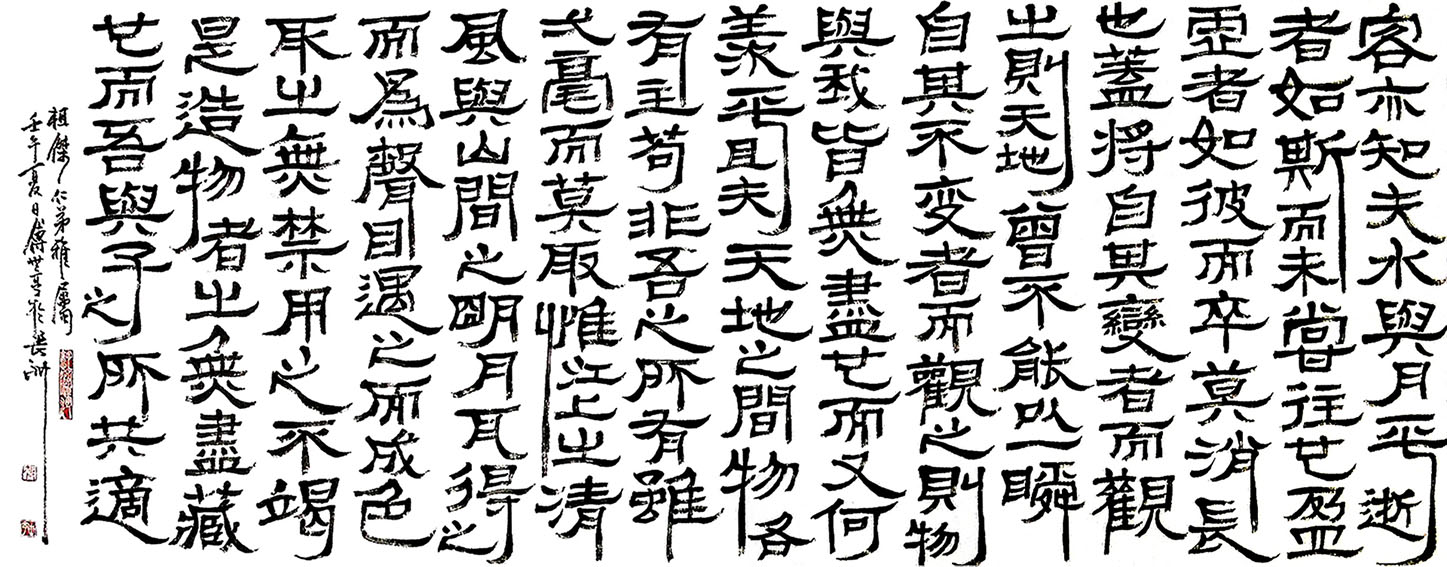 客亦知夫水與月乎逝
者如斯而未嘗往也盈
虛者如彼而卒莫消長
也蓋將自其變者而觀
之則天地曾不能以一瞬
自其不变者而觀之則物
與我皆無盡也而又何
羨乎且夫天地之間物各
有主苟非吾之所有雖
弌毫而莫取惟江上之清
風與山間之明月耳得之
而為聲目遇之而成色
取之無禁用之不竭
是造物者之無盡藏
也而吾與子之所共適
祖傑仁弟雅屬
壬午夏日傅世亨於